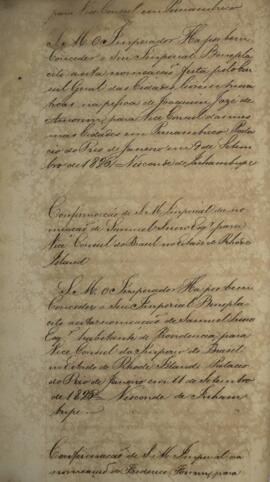 para Vice Consul em Pernambuco
S. M. O Imperador Ha por bem
Conceder o Seu Imperial Benepla-
cito a esta nomeação feita pelo Con-
sul Geral das Cidades
na pessoa de Joaquim Joze de
Amorim, para Vice Consul das mes-
mas Cidades em Pernambuco. Pala-
cio do Rio de Janeiro em 9 de Setem-
bro de 1825 = Visconde de Inhambupe
Confirmação de S. M. Imperial da no-
meação de Samuel Esqr. para
Vice Consul do Brasil no Estado de Rhode
Island
S. M. O Imperador Ha por bem
Conceder o Seu Imperial Benepla-
cito a esta nomeação de Samuel
Esqr. habitante de Providencia para
Vice Consul do Imperio do Brasil
no Estado de Rhode Island. Palacio
do Rio de Janeiro em 11 de Setembro
de 1825 = Visconde de Inham-
bupe =
Confirmação de S. M. Imperial da
nomeação de Frederico para